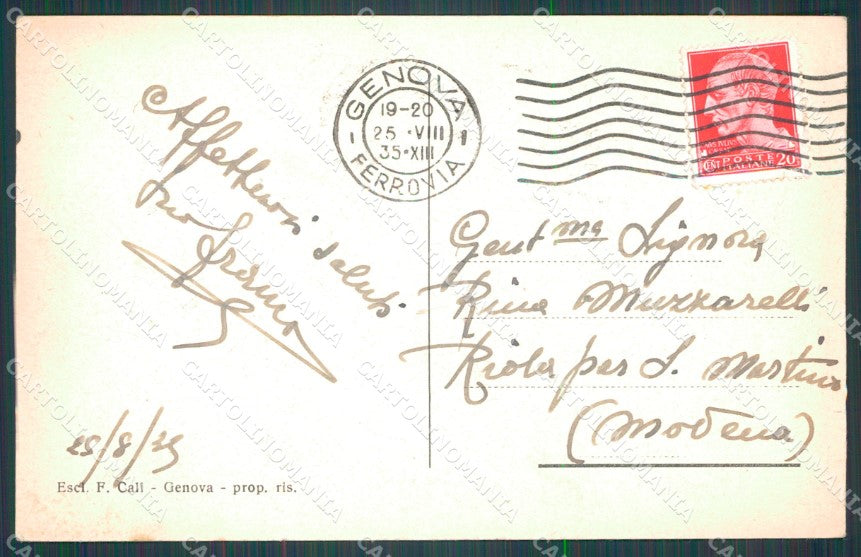 GENOVA
19-20
25 · VIII
35 · XIII
FERROVIA
POSTE
CENT ITALIANE 20
Affettuosi saluti
tuo
25/8/35
Gent ma Signora
Rina Muzzarelli
Riola per S. Martino
(Modena)
Escl. F. Cali - Genova - prop. ris.
CARTOLINOMANIA